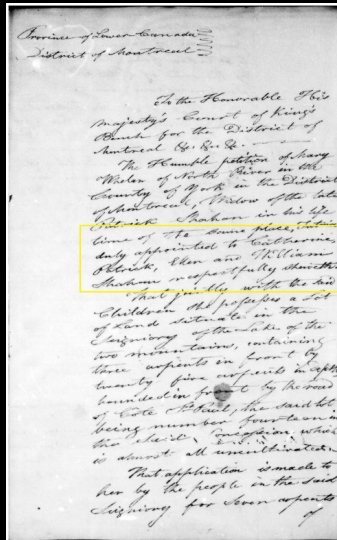 Province of Lower Canada
District of Montreal
To the Honorable His
Majesty's Court of King's
Bench for the District of
Montreal &c. &c. &c.
The Humble petition of Mary
Whelen of North River in the
County of York in the District
of Montreal, Widow of the late
Patrick Shahan in his life
time of the same place, Tutrix
duly appointed to Catherine,
Patrick, Ellen and William
Shahan respectfully sheweth
That jointly with the said
Children she possesses a Lot
of Land situate in the
Seigniory of the Lake of the
two mountains, containing
three arpents in front by
twenty five arpents in depth
bounded in front by the road
of Cote St Paul, the said lot
being number fourteen in
the said Concession which
is almost all uncultivated
That application is made to
her by the people in the said
Seigniory for seven arpents
of